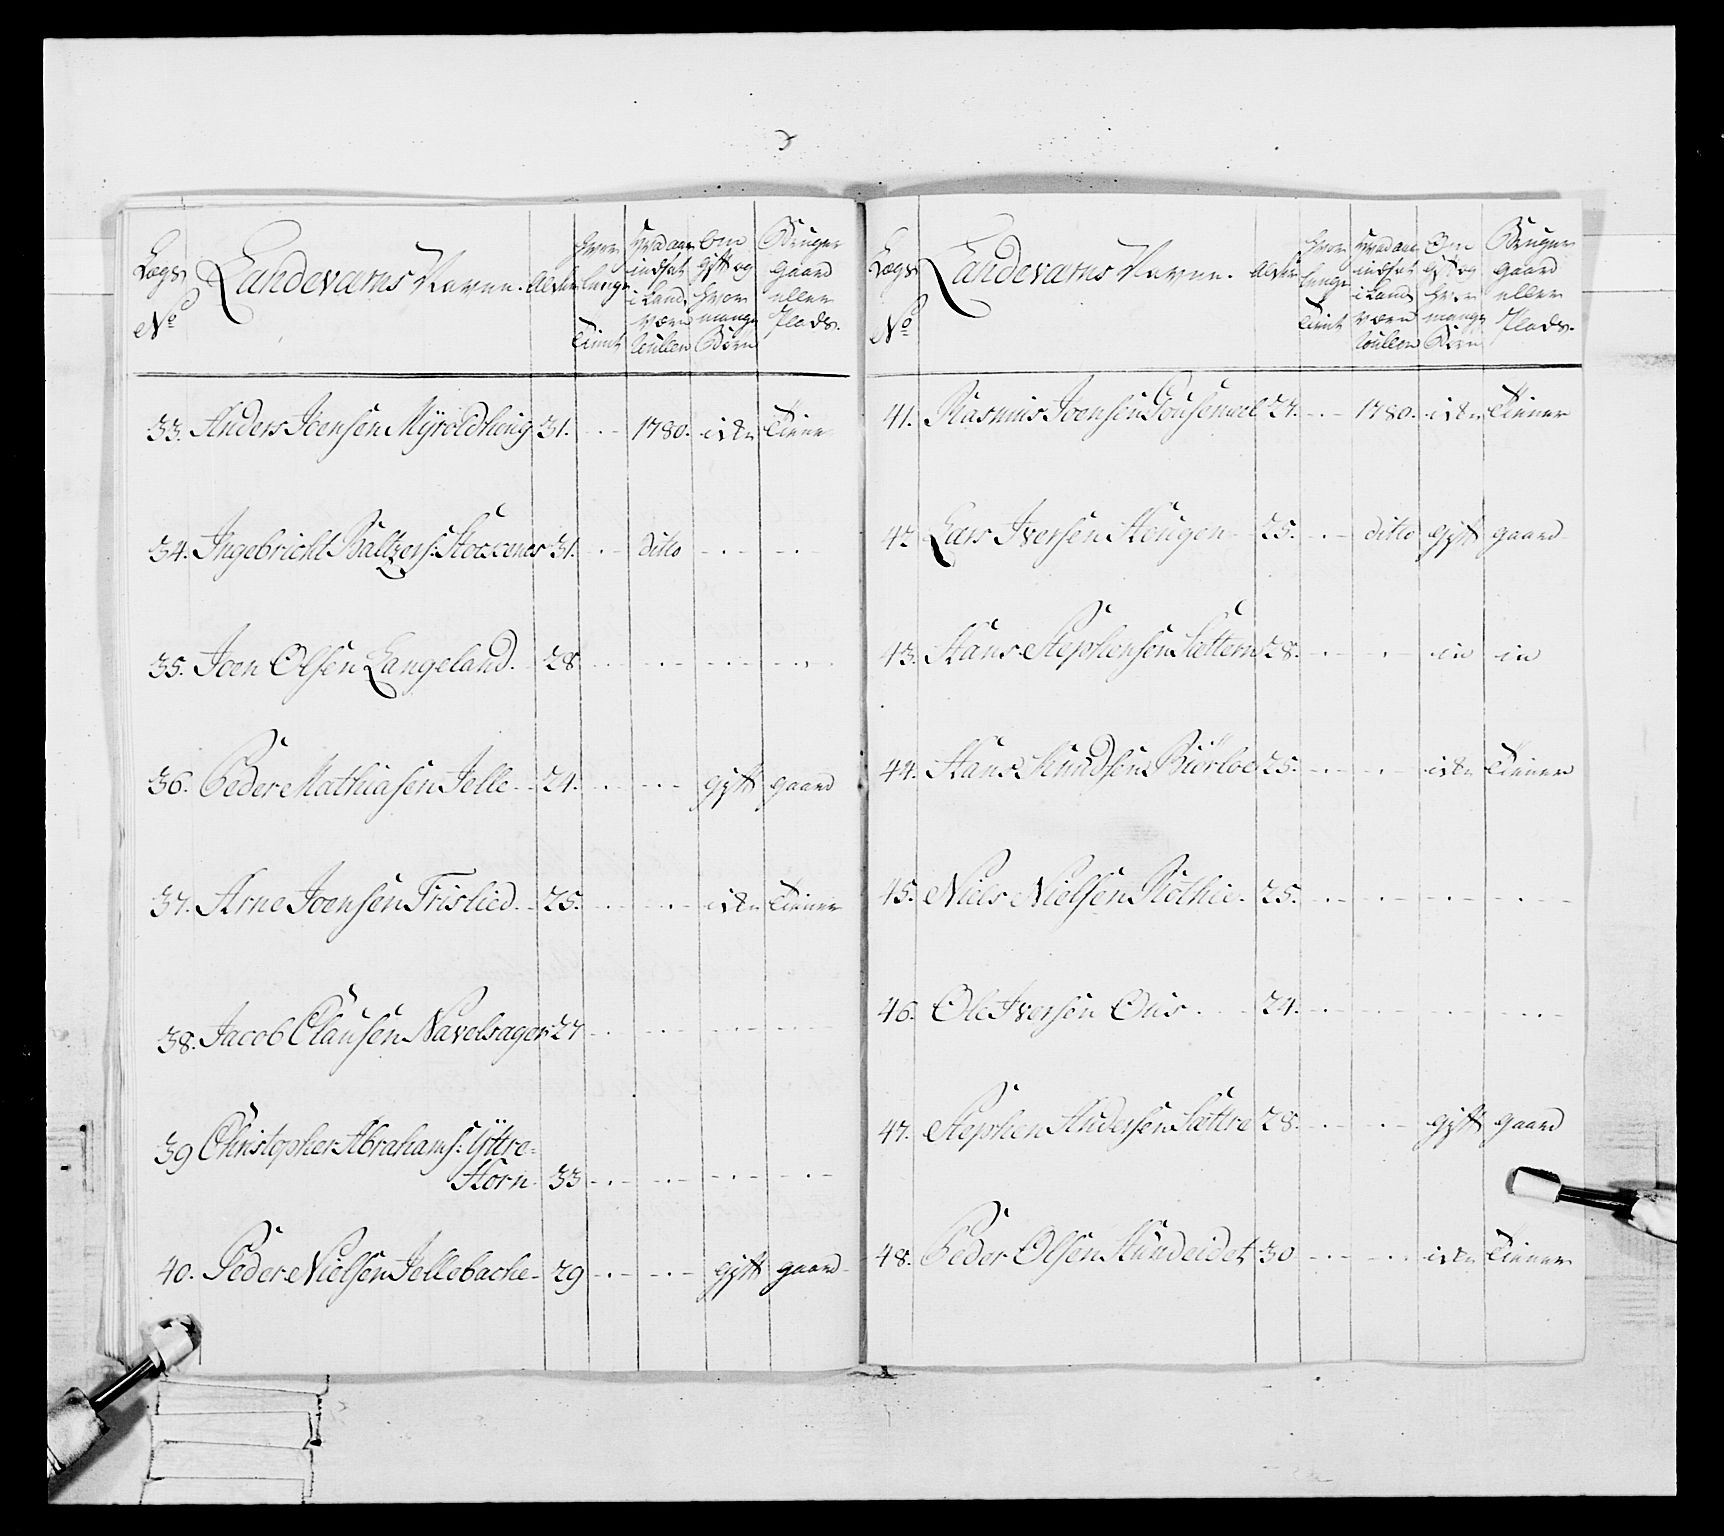 Lægs No Landeværns Navne. Alder hvor længe tient hvad aar indsat i Land Værn Rullen Om gift og hvor mange Børn Bruger gaard eller Plads.
33. Anders Joensen Myroldhoug 31. - . - 1780. icke tiener
34. Ingebricht Baltzers: 31. - . - ditto - . - - . -
35. Joen Olsen Langeland. 28 - . - - . - - . - - . -
36. Peder Mathiasen Jelle 24. - . - - . - gift gaard
37. Arne Joensen Frislied. 25. - . - - . - icke tiener
38. Jacob Clausen Navelsager 27 - . - - . - - . - - . -
39 Christopher Abrahams: Yttre-
Horn 33 - . - - . - - . - - . -
40. Peder Nielsen Jellebache 29 - . - - . - gift gaard
Lægs No Landeværns Navne. Alder hvor længe tient hvad aar indsat i Land Værn Rullen Om gift og hvor mange Børn Bruger gaard eller Plads.
41. Rasmus Joensen 27. - . - 1780. icke tiener
42 Lars Iversen Hougen 25. - . - ditto gift gaard
43. Hans Stephensen 28. - . - - . -
44. Hans Knudsen Biørloe 25. - . - - . - icke tiener
45. Niels Nielsen Rothie. 25. - . - - . - - . - - . -
46. Ole Iversen Ous 24. - . - - . - - . - - . -
47. Stephen Andersen Sættre 28. - . - - . - gift gaard
48. Peder Olsen 30 - . - - . - icke tiener